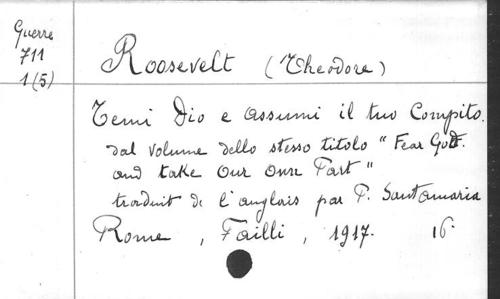 Guerre
711
1(5)
Roosevelt (Theodore)
Temi Dio e assumi il tuo Compito.
dal volume dello stesso titolo "Fear God.
and take Our Own Part"
traduit de l'anglais par P. Santamaria
Rome, Failli, 1917. 16°